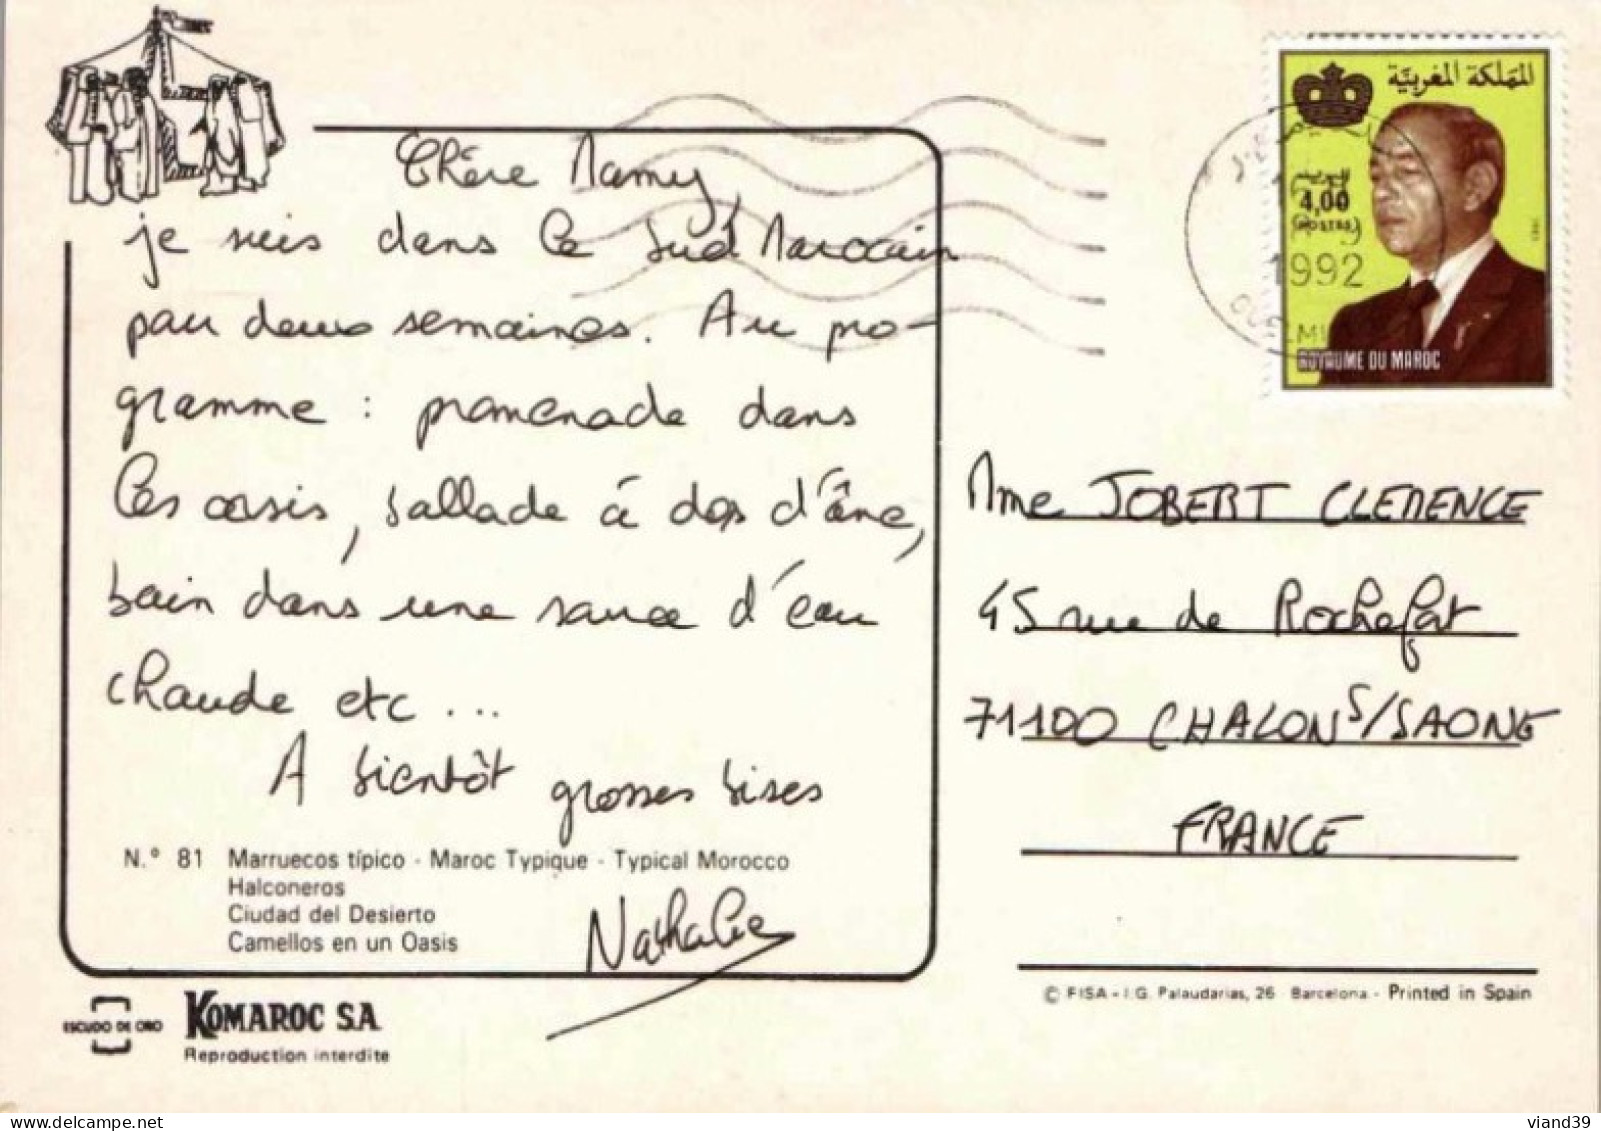 Chère Mamy,
je suis dans le Sud Marocain
pour deux semaines. Au pro-
gramme : promenade dans
les oasis, ballade à dos d'âne,
bain dans une source d'eau
chaude etc...
A bientôt grosses bises
Nathalie
N.º 81 Marruecos típico - Maroc Typique - Typical Morocco
Halconeros
Ciudad del Desierto
Camellos en un Oasis
ESCUDO DE ORO
KOMAROC S.A.
Reproduction interdite
المملكة المغربية
البريد
4,00
(POSTES)
1992
ROYAUME DU MAROC
Mme JOBERT CLEMENCE
45 rue de Rochefort
71100 CHALON S/SAONE
FRANCE
© FISA - I.G. Palaudarias, 26 - Barcelona - Printed in Spain
delcampe.net
viand39